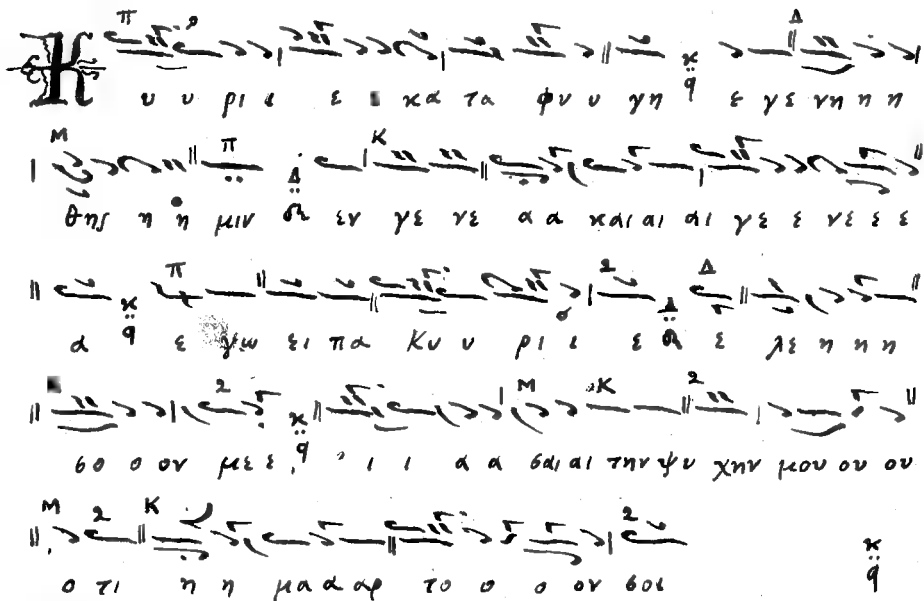 Κ υ υ ρι ι ε κα τα φυ υ γη ε γε νη η η
θης η η μιν εν γε νε α α και αι αι γε ε νε ε ε
α ε γω ει πα Κυ υ ρι ι ε ε λε η η η
σο ο ον με ε ι ι α α σαι αι την ψυ χην μου ου ου
ο τι η η μα α αρ το ο ο ον σοι